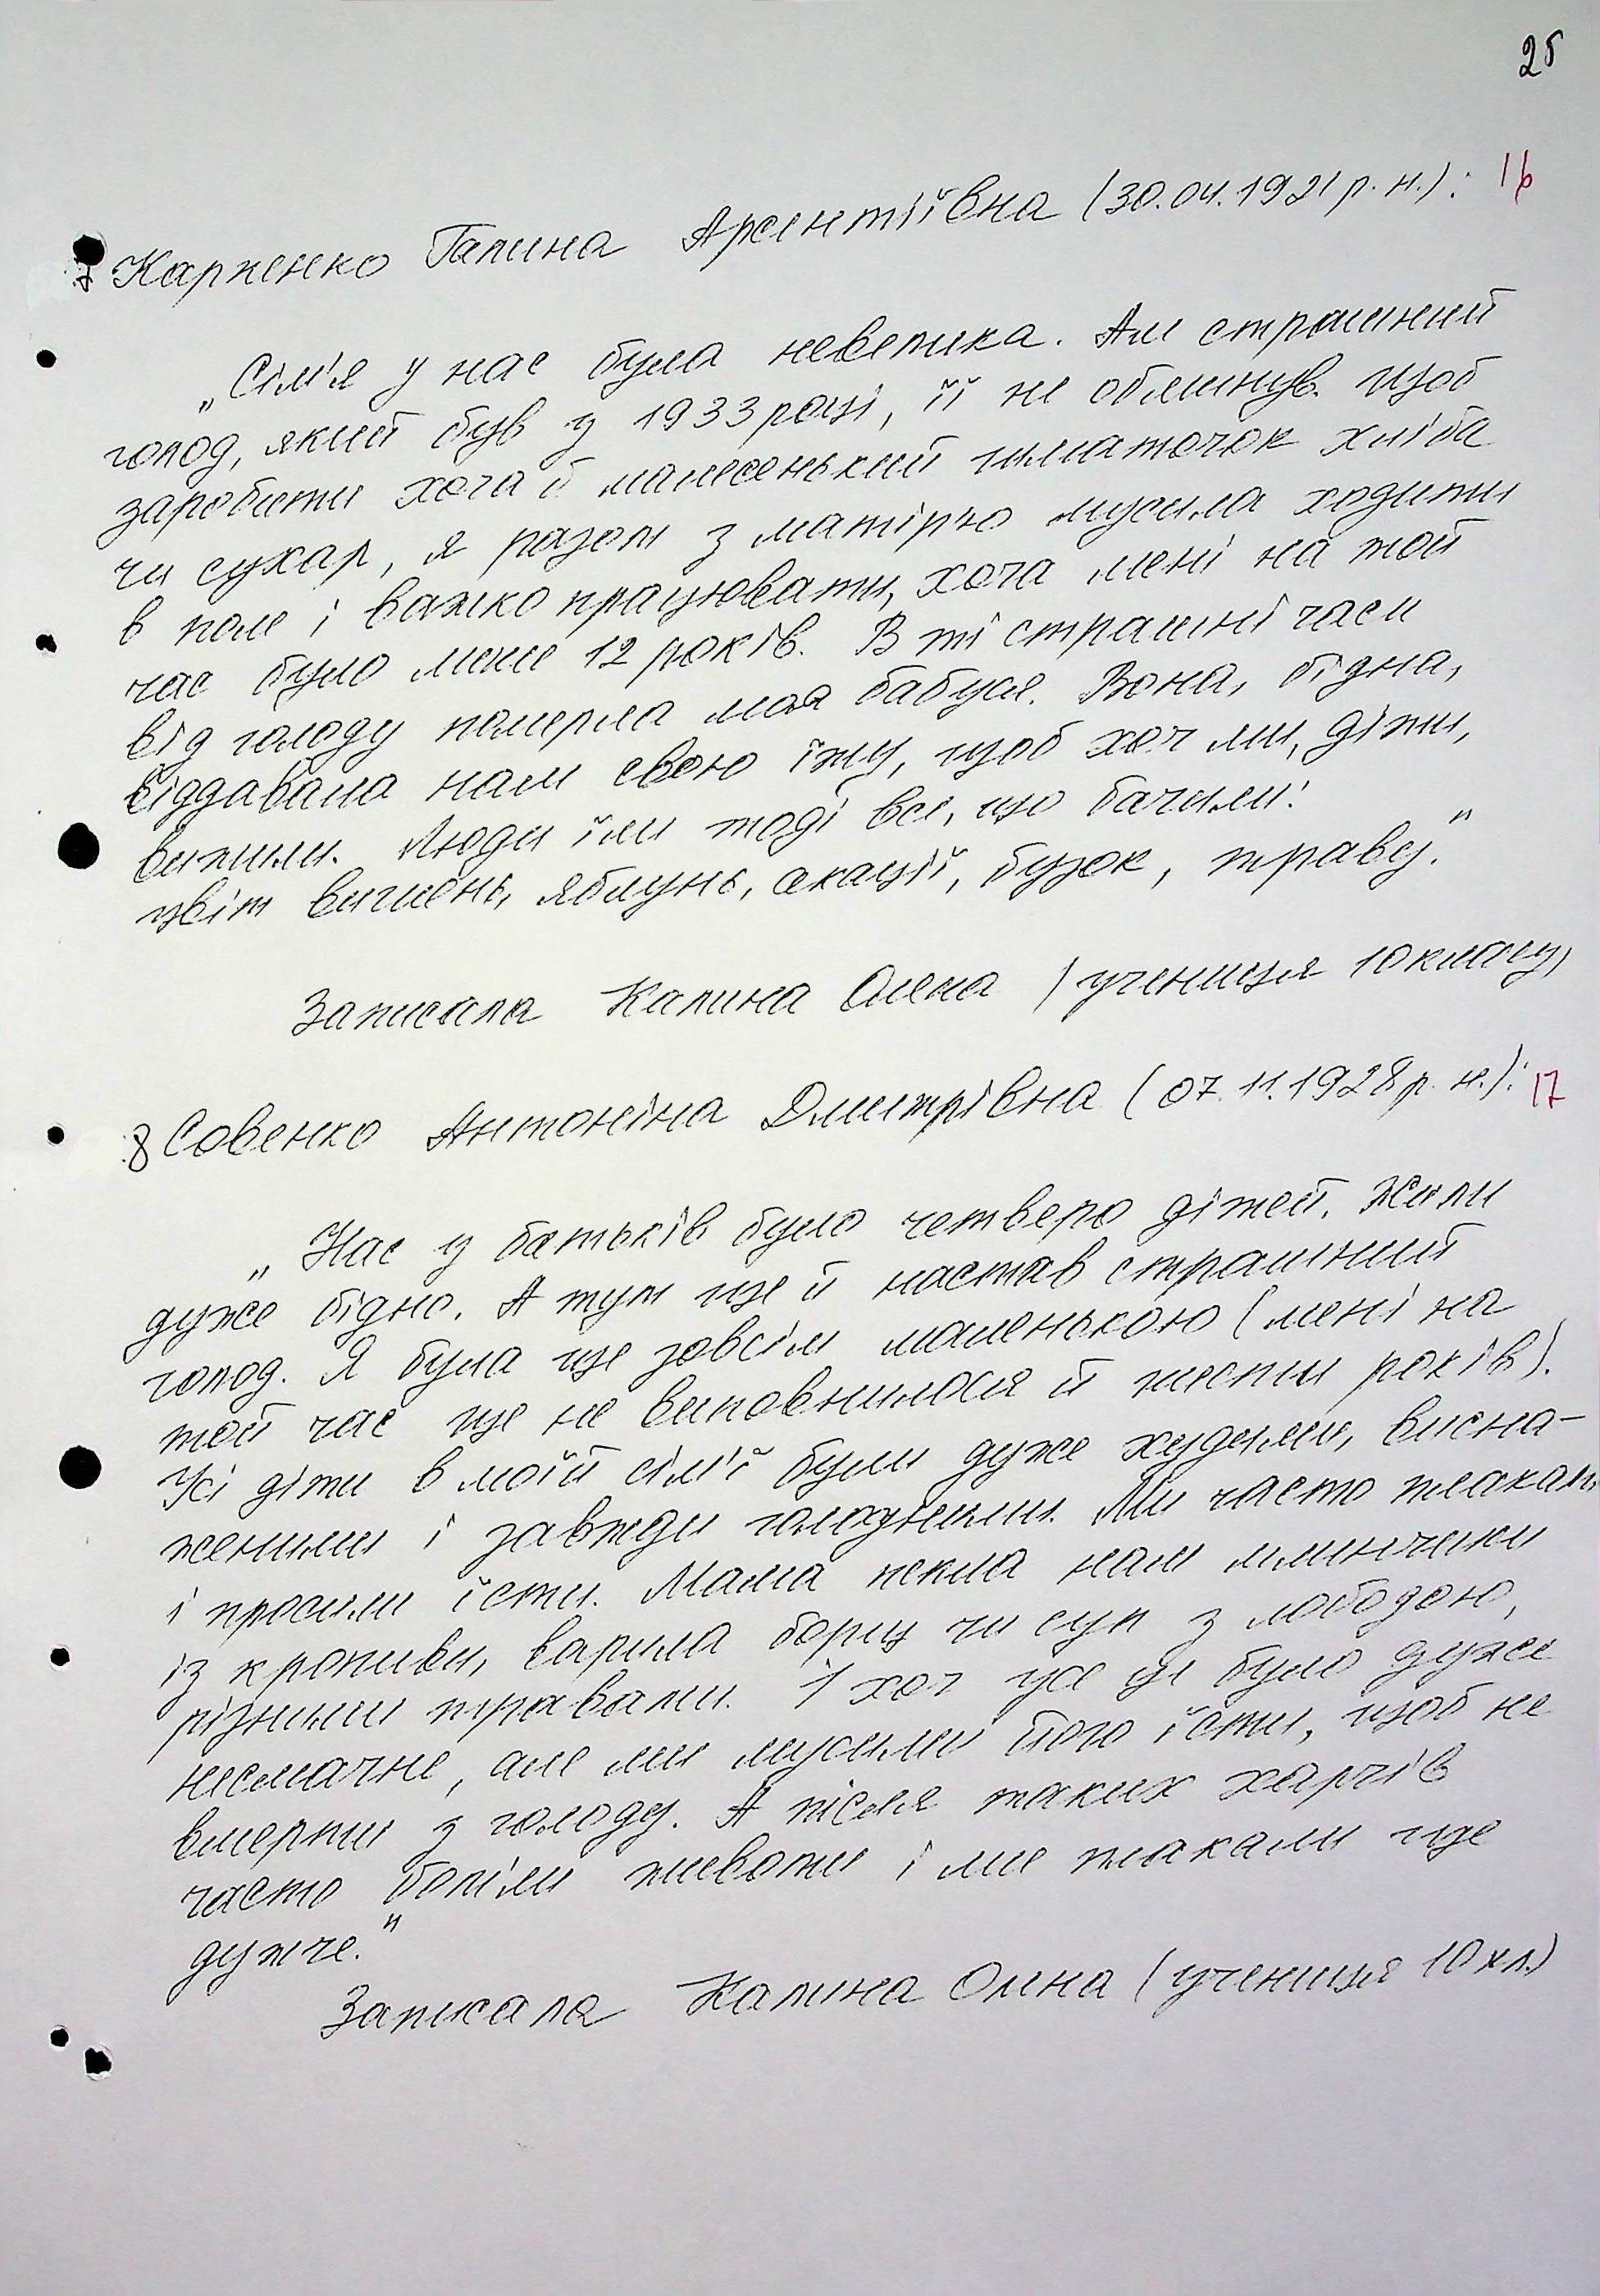 25
16
7 Карпенко Галина Арсентіївна (30.04.1921 р. н.):
„Сім'я у нас була невелика. Але страшний
голод, який був у 1933 році, її не обминув. Щоб
заробити хоча б малесенький шматочок хліба
чи сухар, я разом з матір'ю мусила ходити
в поле і важко працювати, хоча мені на той
час було лише 12 років. В ті страшні часи
від голоду померла моя бабуся. Вона, бідна,
віддавала нам свою їжу, щоб хоч ми, діти,
вижили. Люди їли тоді все, що бачили:
цвіт вишень, яблунь, акації, бузок, траву."
Записала Калина Олена (учениця 10 класу)
17
8 Совенко Антоніна Дмитрівна (07.11.1928 р. н.):
„Нас у батьків було четверо дітей. Жили
дуже бідно. А тут ще й настав страшний
голод. Я була ще зовсім маленькою (мені на
той час ще не виповнилося й шести років).
Усі діти в моїй сім'ї були дуже худими, висна-
женими і завжди голодними. Ми часто плакали
і просили їсти. Мама пекла нам млинчики
із кропиви, варила борщ чи суп з лободою,
різними травами. І хоч усе це було дуже
несмачне, але ми мусили його їсти, щоб не
вмерти з голоду. А після таких харчів
часто боліли животи і ми плакали ще
дужче."
Записала Калина Олена (учениця 10 кл.)